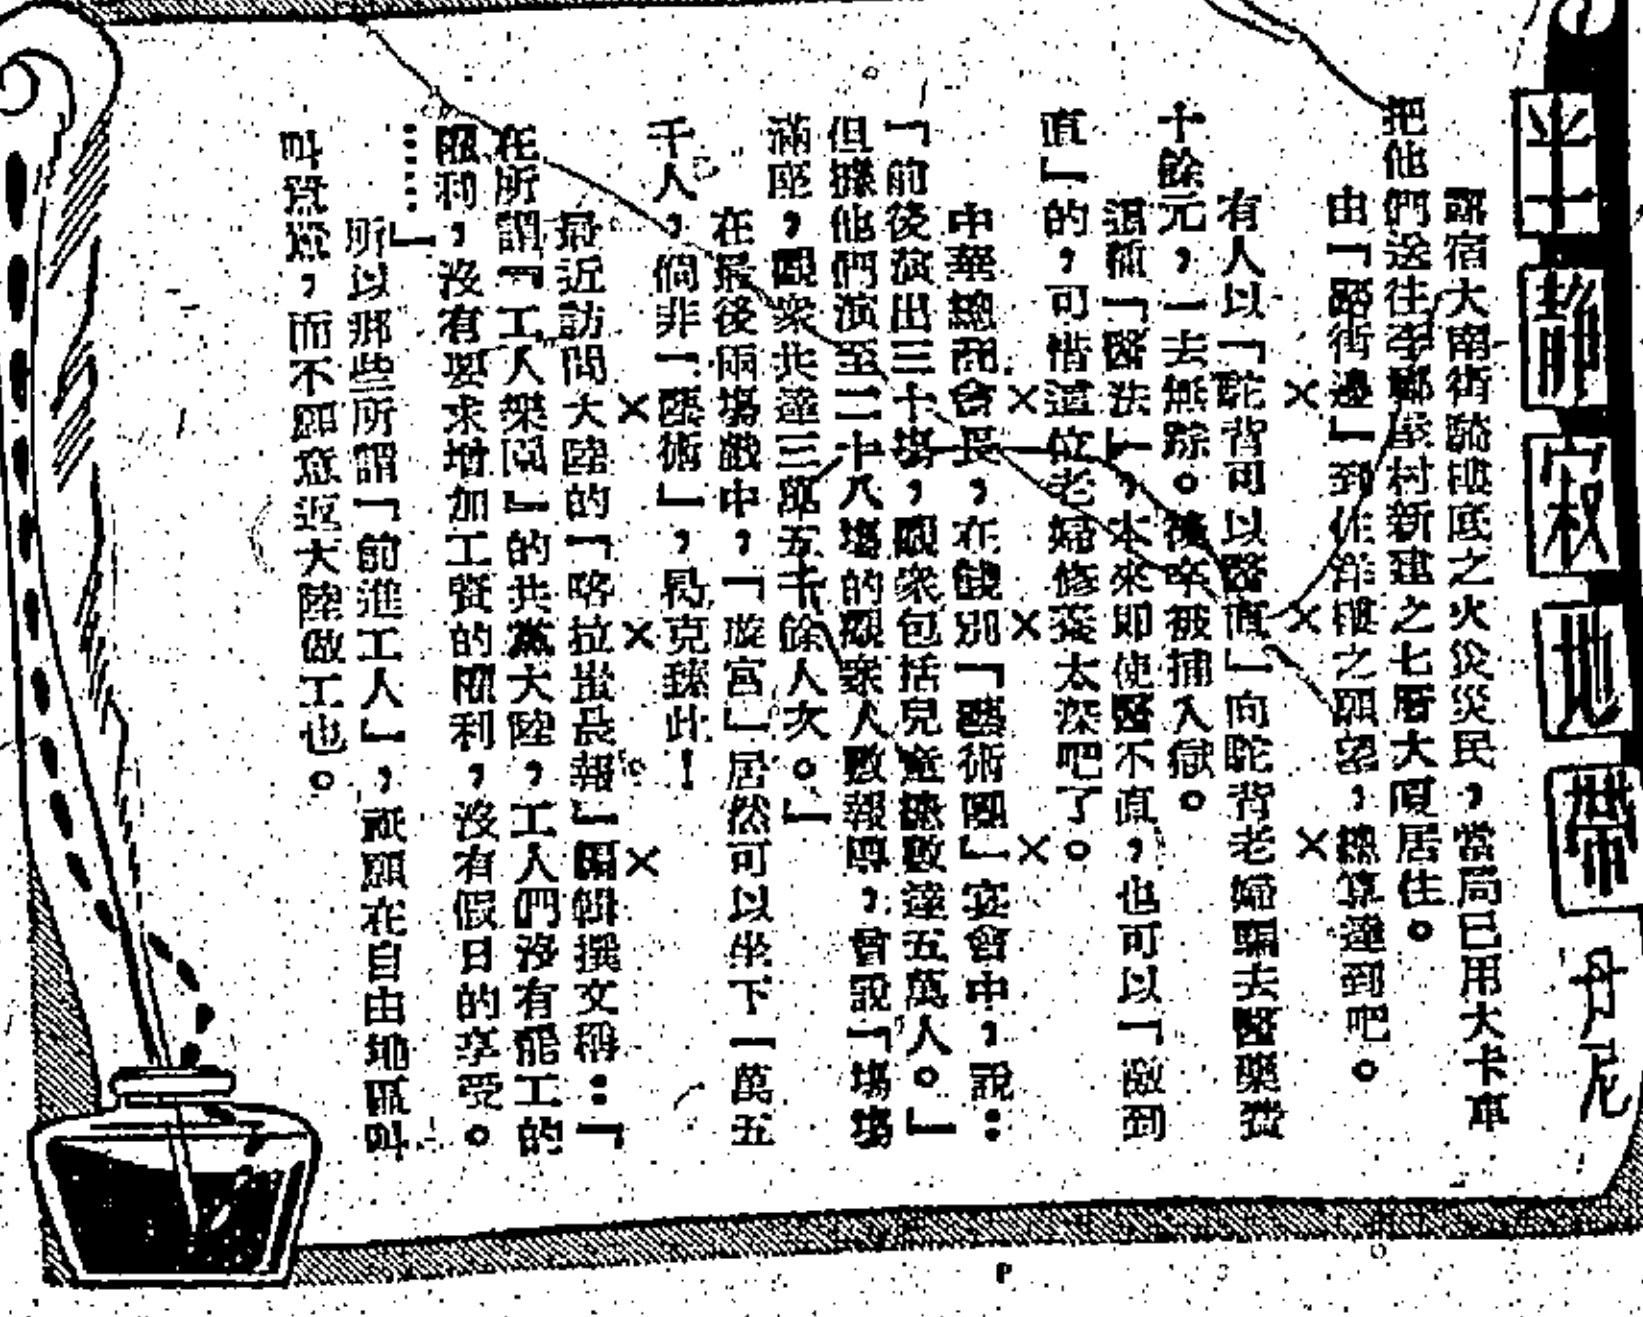 半士靜寂地帶
丹尼
露宿大南街騎樓底之火災災民，當局已用大卡車
把他們送往李鄭屋村新建之七層大廈居住。
由「踎街邊」到住洋樓之願望，總算達到吧。
×××
有人以「駝背可以醫直」向駝背老婦騙去醫藥費
十餘元，一去無踪。後卒被捕入獄。
這種「醫法」，本來即使醫不直，也可以「激到
直」的，可惜這位老婦修養太深吧了。
×××
中華總商會長，在餞別「藝術團」宴會中，說：
「前後演出三十場，觀衆包括兒童總數達五萬人。」
但據他們演至二十八場的觀衆人數報導，曾說「場場
滿座，觀衆共達三萬五千餘人次。」
在最後兩場戲中，「璇宮」居然可以坐下一萬五
千人，倘非「藝術」，曷克臻此！
×××
最近訪問大陸的「喀拉蚩晨報」編輯撰文稱：『
在所謂『工人樂園』的共黨大陸，工人們沒有罷工的
權利，沒有要求增加工資的權利，沒有假日的享受。
……』
所以那些所謂「前進工人」，祇願在自由地區叫
叫，而不願意返大陸做工也。